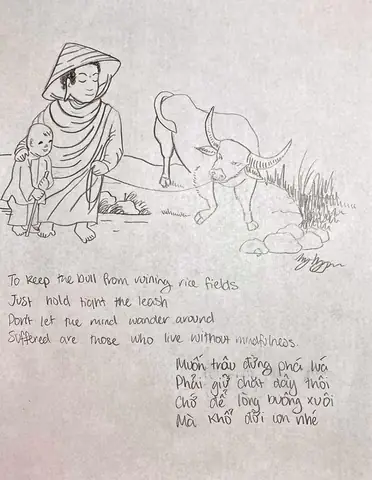 To keep the bull from ruining rice fields
Just hold tight the leash
Don't let the mind wander around
Suffered are those who live without mindfulness.
Muốn trâu đừng phá lúa
Phải giữ chặt dây thôi
Chớ để lòng buông xuôi
Mà khổ đời con nhé